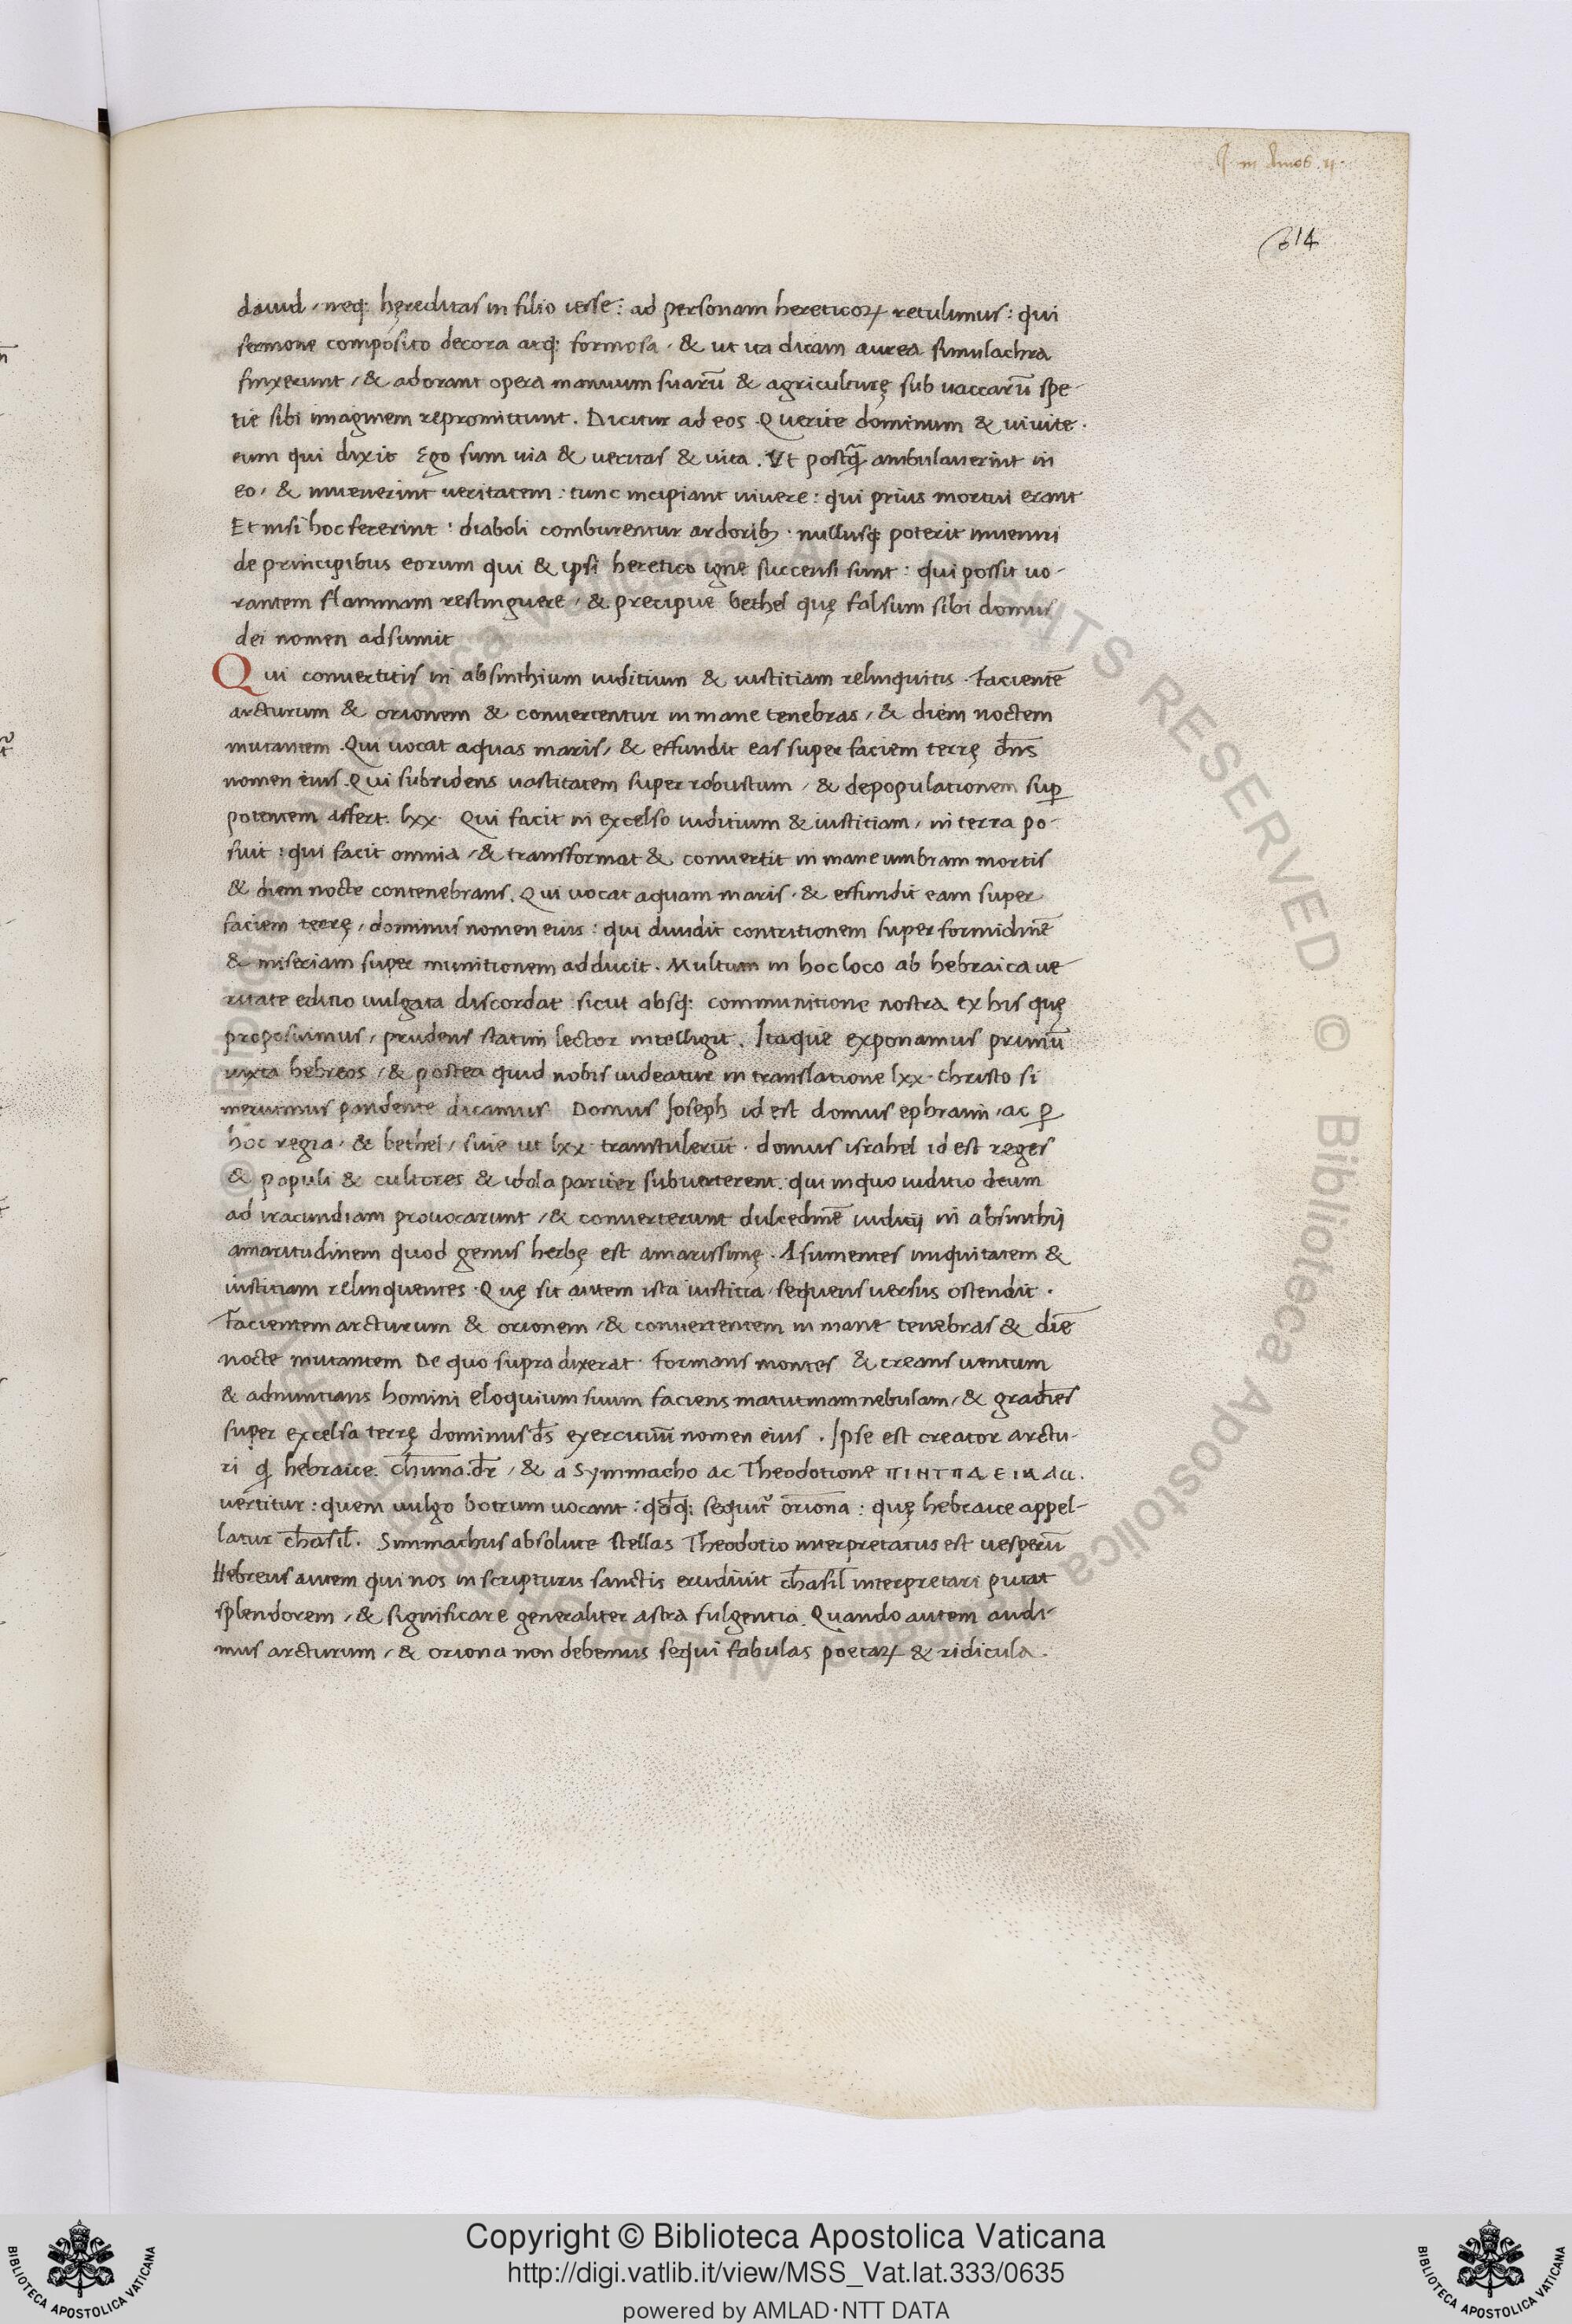 J in Amos ij.
314
dauid, neq: hęreditas in filio iesse: ad personam hereticoꝝ retulimus: qui
sermone composito decora atq: formosa, & ut ita dicam aurea simulachra
finxerunt, & adorant opera manuum suarū & agriculturę sub uaccarū spe-
tie sibi imaginem repromittunt. Dicitur ad eos Querite dominum & uiuite.
eum qui dixit Ego sum uia & ueritas & uita. Vt postq̃ ambulauerint in
eo, & inuenerint ueritatem: tunc incipiant uiuere: qui prius mortui erant
Et nisi hoc fecerint: diaboli comburentur ardorib; nullusq: poterit inueniri
de principibus eorum qui & ipsi heretico igne succensi sunt: qui possit uo-
rantem flammam restinguere, & precipue bethel quę falsum sibi domus
dei nomen adsumit
Qui conuertitis in absinthium iuditium & iustitiam relinquitis. Facientē
arcturum & orionem & conuertentur in mane tenebras, & diem noctem
mutantem. Qui uocat aquas maris, & effundit eas super faciem terrę dn̄s
nomen eius. Qui subridens uastitatem super robustum, & depopulationem suꝑ
potentem affert. lxx. Qui facit in excelso iuditium & iustitiam, in terra po-
suit: qui facit omnia, & transformat & conuertit in mane umbram mortis
& diem nocte contenebrans. Qui uocat aquam maris, & effundit eam super
faciem terrę, dominus nomen eius: qui diuidit contritionem super formidinē
& miseriam super munitionem adducit. Multum in hoc loco ab hebraica ue
ritate editio uulgata discordat sicut absq: communitione nostra ex his quę
proposuimus, prudens statim lector intelligit. Itaque exponamus primū
iuxta hebreos, & postea quid nobis uideatur in translatione lxx. christo si
meruimus pandente dicamus Domus Joseph id est domus ephraim, ac ꝑ
hoc regia, & bethel, siue ut lxx transtulerūt. domus israhel id est reges
& populi & cultores & idola pariter subuerterent. qui iniquo iuditio deum
ad iracundiam prouocarunt, & conuerterunt dulcedinē iuditij in absinthij
amaritudinem quod genus herbę est amarissimę. Asumentes iniquitatem &
iustitiam relinquentes. Quę sit autem ista iustitia, sequens uersus ostendit.
Facientem arcturum & orionem, & conuertentem in mane tenebras & diē
nocte mutantem De quo supra dixerat. Formans montes & creans uentum
& adnuntians homini eloquium suum faciens matutinam nebulam, & gradiēs
super excelsa terrę dominus ds̄ exercituū nomen eius. Ipse est creator arctu-
ri q̄ hebraice. chima. dr̄, & a Symmacho ac Theodotione
uertitur: quem uulgo botrum uocant: qd̄q: sequit᷑ oriona: quę hebraice appel-
latur chasil. Simmachus absolute stellas Theodotio interpretatus est uesperū
Hebreus autem qui nos in scripturis sanctis erudiuit chasil interpretari putat
splendorem, & significare generaliter astra fulgentia. Quando autem audi-
mus arcturum, & oriona non debemus sequi fabulas poetaꝝ & ridicula.
Copyright © Biblioteca Apostolica Vaticana
http://digi.vatlib.it/view/MSS_Vat.lat.333/0635
powered by AMLAD·NTT DATA